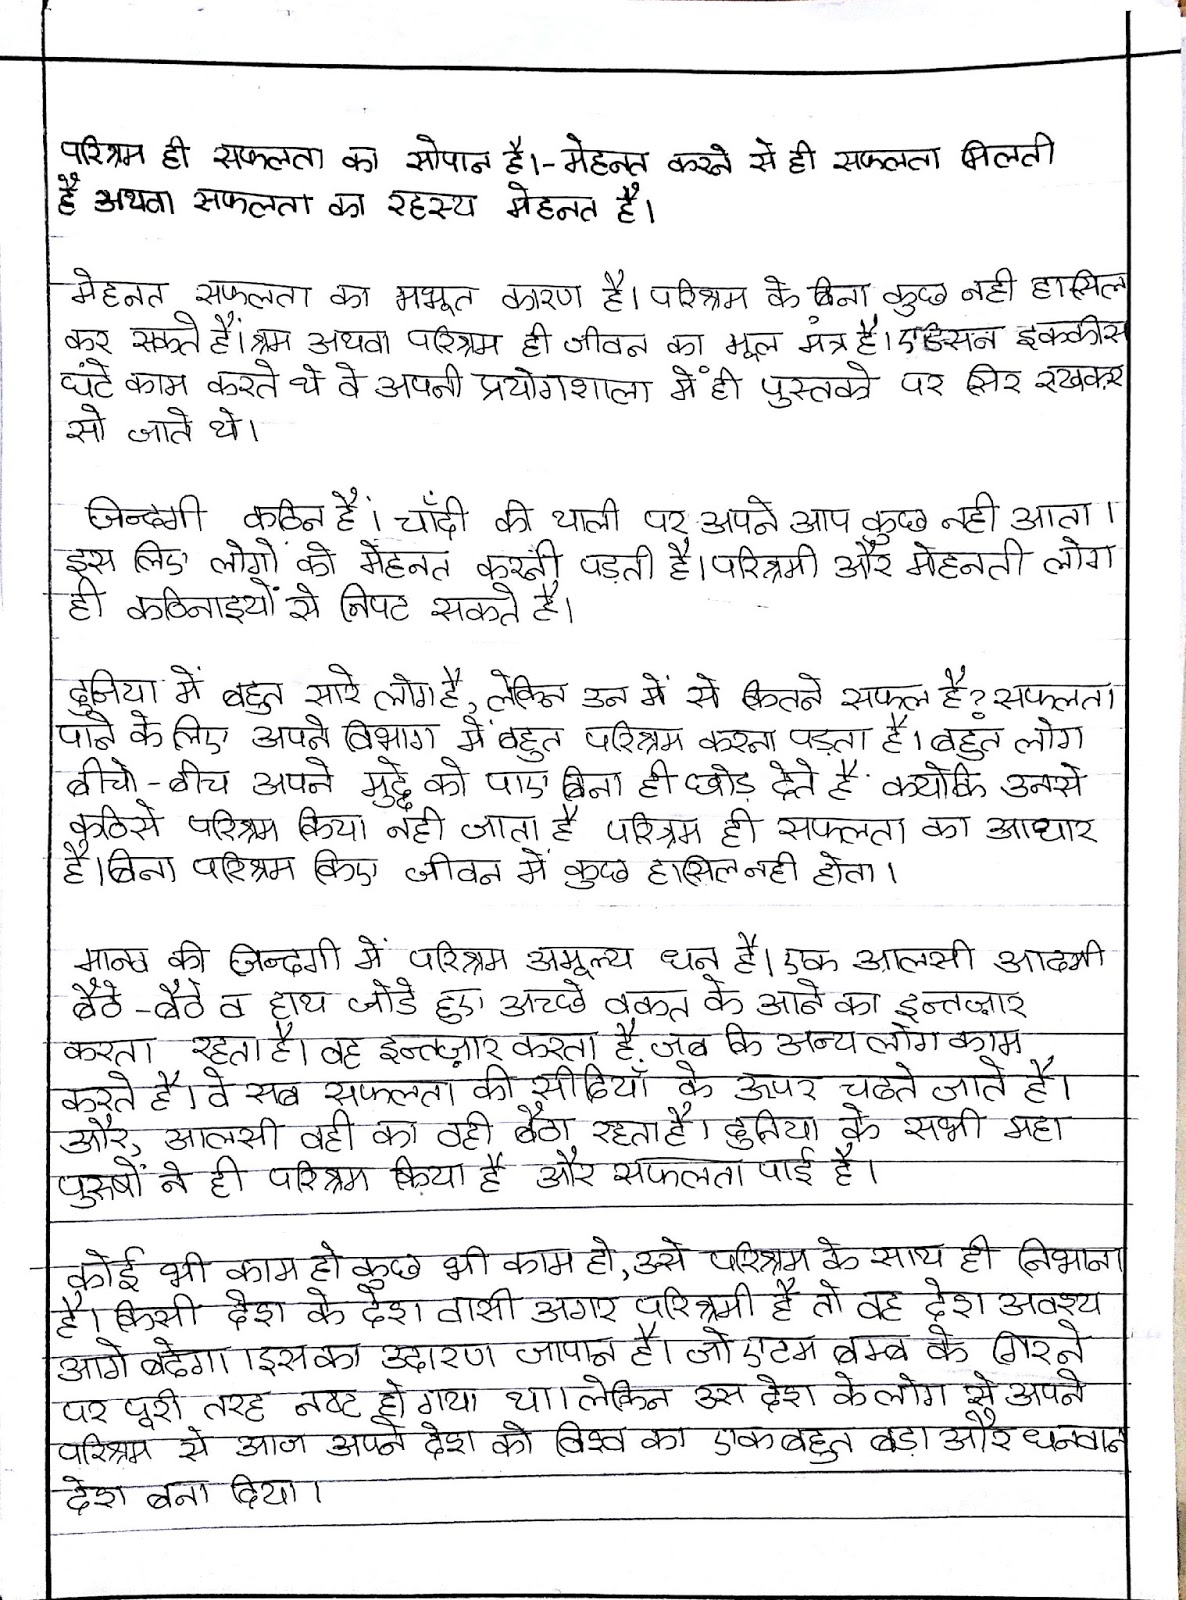 परिश्रम ही सफलता का सोपान है।-मेहनत करने से ही सफलता मिलती
है अथवा सफलता का रहस्य मेहनत है।
मेहनत सफलता का मभूत कारण है। परिश्रम के बिना कुछ नही हासिल
कर सकते हैं। श्रम अथवा परिश्रम ही जीवन का मूल मंत्र है। एडिसन इक्कीस
घंटे काम करते थे वे अपनी प्रयोगशाला में ही पुस्तको पर सिर रखकर
सो जाते थे।
जिन्दगी कठिन है। चाँदी की थाली पर अपने आप कुछ नही आता।
इस लिए लोगों को मेहनत करनी पड़ती है। परिश्रमी और मेहनती लोग
ही कठिनाइयों से निपट सकते है।
दुनिया में बहुत सारे लोग है, लेकिन उन में से कितने सफल है? सफलता
पाने के लिए अपने विभाग में बहुत परिश्रम करना पड़ता है। बहुत लोग
बीचो-बीच अपने मुद्दे को पाए बिना ही छोड़ देते है क्योकि उनसे
कठिसे परिश्रम किया नही जाता है परिश्रम ही सफलता का आधार
है। बिना परिश्रम किए जीवन में कुछ हासिल नही होता।
की जिन्दगी में परिश्रम अमूल्य धन है। एक आलसी आदमी
बैठे-बैठे व हाथ जोडे हुए अच्छे वकत के आने का इन्तज़ार
करता रहता है। वह इन्तज़ार करता है, जब कि अन्य लोग काम
करते है। वे सब सफलता की सीढियाँ के ऊपर चढते जाते है।
और, आलसी वही का वही बैठा रहता है। दुनिया के सभी महा
पुरुषों ने ही परिश्रम किया है और सफलता पाई है।
कोई भी काम हो कुछ भी काम हो, उसे परिश्रम के साथ ही निभाना
है। किसी देश के देश वासी अगर परिश्रमी है तो वह देश अवश्य
आगे बढेगा। इसका उदारण जापान है। जो एटम बम्ब के गिरने
पर पूरी तरह नष्ट हो गया था। लेकिन उस देश के लोग से अपने
परिश्रम से आज अपने देश को विश्व का एक बहुत बड़ा और धनवान
देश बना दिया।